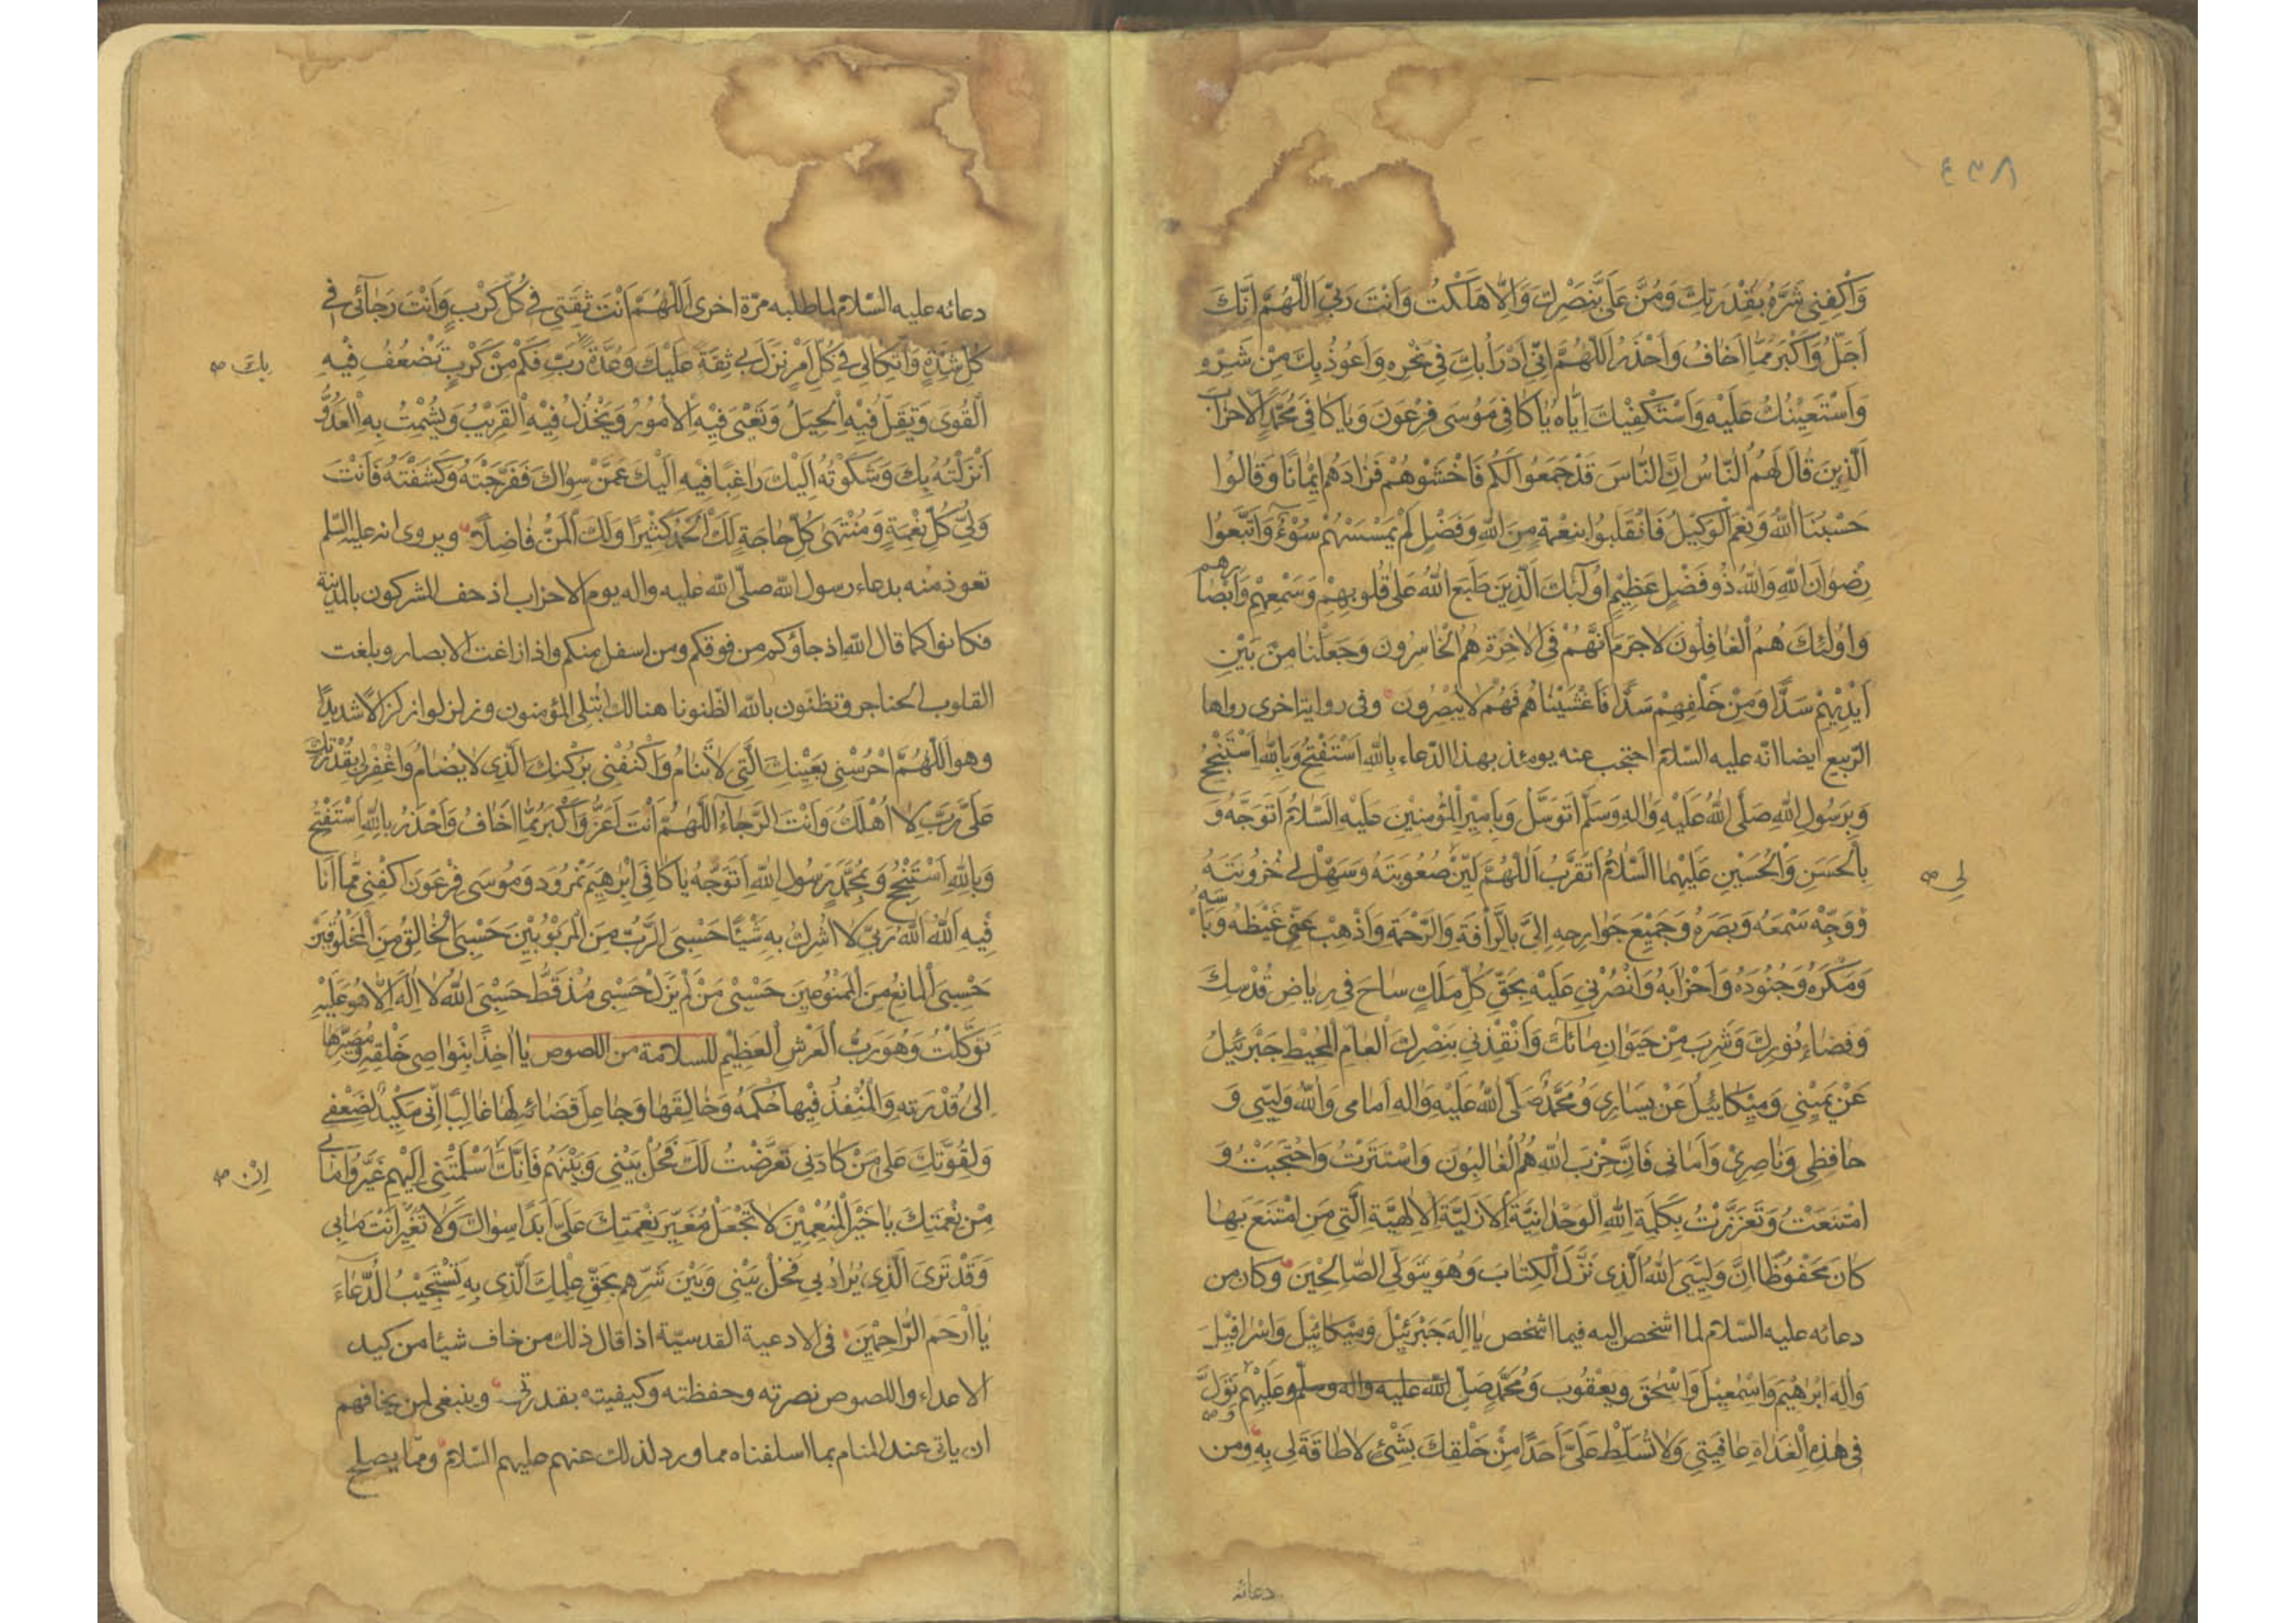 ٤٣٨
وَاكْفِنِي شَرَّهُ بِقُدْرَتِكَ وَمُنَّ عَلَيَّ بِنَصْرِكَ وَاِلَّا هَلَكْتُ وَاَنْتَ رَبِّي اَللّٰهُمَّ اِنَّكَ
اَجَلُّ وَاَكْبَرُ مِمَّا اَخَافُ وَاَحْذَرُ اَللّٰهُمَّ اِنِّي اَدْرَأُ بِكَ فِي نَحْرِهِ وَاَعُوذُ بِكَ مِنْ شَرِّهِ
وَاَسْتَعِيْنُكَ عَلَيْهِ وَاَسْتَكْفِيْكَ اِيَّاهُ يَا كَافِيَ مُوسَى فِرْعَوْنَ وَيَا كَافِيَ مُحَمَّدٍ الْاَحْزَابَ
اَلَّذِينَ قَالَ لَهُمُ النَّاسُ اِنَّ النَّاسَ قَدْ جَمَعُوا لَكُمْ فَاخْشَوْهُمْ فَزَادَهُمْ اِيْمَانًا وَقَالُوا
حَسْبُنَا اللّٰهُ وَنِعْمَ الْوَكِيْلُ فَانْقَلَبُوا بِنِعْمَةٍ مِنَ اللّٰهِ وَفَضْلٍ لَمْ يَمْسَسْهُمْ سُوْءٌ وَاتَّبَعُوا
رِضْوَانَ اللّٰهِ وَاللّٰهُ ذُو فَضْلٍ عَظِيْمٍ اُولٰئِكَ الَّذِينَ طَبَعَ اللّٰهُ عَلٰى قُلُوبِهِمْ وَسَمْعِهِمْ وَاَبْصَارِهِمْ
وَاُولٰئِكَ هُمُ الْغَافِلُونَ لَاجَرَمَ اَنَّهُمْ فِي الْاٰخِرَةِ هُمُ الْخَاسِرُونَ وَجَعَلْنَا مِنْ بَيْنِ
اَيْدِيْهِمْ سَدًّا وَمِنْ خَلْفِهِمْ سَدًّا فَاَغْشَيْنَاهُمْ فَهُمْ لَا يُبْصِرُونَ وفي رواية اخرى رواها
الربيع ايضا انه عليه السلام احتجب عنه يومئذ بهذا الدعاء بِاللّٰهِ اَسْتَفْتِحُ وَبِاللّٰهِ اَسْتَنْجِحُ
وَبِرَسُولِ اللّٰهِ صَلَّى اللّٰهُ عَلَيْهِ وَاٰلِهِ وَسَلَّمَ اَتَوَسَّلُ وَبِاَمِيْرِ الْمُؤْمِنِيْنَ عَلَيْهِ السَّلَامُ اَتَوَجَّهُ وَ
بِالْحَسَنِ وَالْحُسَيْنِ عَلَيْهِمَا السَّلَامُ اَتَقَرَّبُ اَللّٰهُمَّ لَيِّنْ صُعُوبَتَهُ وَسَهِّلْ لِي حُزُونَتَهُ
لي صح
وَوَجِّهْ سَمْعَهُ وَبَصَرَهُ وَجَمِيْعَ جَوَارِحِهِ اِلَيَّ بِالرَّأْفَةِ وَالرَّحْمَةِ وَاَذْهِبْ عَنِّي غَيْظَهُ وَبَأْسَهُ
وَمَكْرَهُ وَجُنُودَهُ وَاَحْزَابَهُ وَانْصُرْنِي عَلَيْهِ بِحَقِّ كُلِّ مَلَكٍ سَاحَ فِي رِيَاضِ قُدْسِكَ
وَفَضَاءِ نُورِكَ وَشَرِبَ مِنْ حَيَوَانِ مَائِكَ وَاَنْقِذْنِي بِنَصْرِكَ الْعَامِّ الْمُحِيْطِ جَبْرَئِيْلُ
عَنْ يَمِيْنِي وَمِيْكَائِيْلُ عَنْ يَسَارِي وَمُحَمَّدٌ صَلَّى اللّٰهُ عَلَيْهِ وَاٰلِهِ اَمَامِي وَاللّٰهُ وَلِيِّي وَ
حَافِظِي وَنَاصِرِيْ وَاَمَانِي فَاِنَّ حِزْبَ اللّٰهِ هُمُ الْغَالِبُونَ وَاسْتَتَرْتُ وَاحْتَجَبْتُ وَ
امْتَنَعْتُ وَتَعَزَّزْتُ بِكَلِمَةِ اللّٰهِ الْوَحْدَانِيَّةِ الْاَزَلِيَّةِ الْاِلٰهِيَّةِ الَّتِي مَنِ امْتَنَعَ بِهَا
كَانَ مَحْفُوظًا اِنَّ وَلِيِّيَ اللّٰهُ الَّذِي نَزَّلَ الْكِتَابَ وَهُوَ يَتَوَلَّى الصَّالِحِيْنَ وكان من
دعائه عليه السلام لما اشخص اليه فيما اشخص يَا اِلٰهَ جَبْرَئِيْلَ وَمِيْكَائِيْلَ وَاِسْرَافِيْلَ
وَاِلٰهَ اِبْرٰهِيْمَ وَاِسْمٰعِيْلَ وَاِسْحٰقَ وَيَعْقُوبَ وَمُحَمَّدٍ صَلَّى اللّٰه عليه واله وسلم وعَلَيْهِمْ تَوَلَّ
فِي هٰذِهِ الْغَدَاةِ عَافِيَتِي وَلَا تُسَلِّطْ عَلَيَّ اَحَدًا مِنْ خَلْقِكَ بِشَيْءٍ لَا طَاقَةَ لِي بِهِ ومن
دعائه
دعائه عليه السلام لما طلبه مرة اخرى اَللّٰهُمَّ اَنْتَ ثِقَتِي فِي كُلِّ كَرْبٍ وَاَنْتَ رَجَائِي فِي
كُلِّ شِدَّةٍ وَاتِّكَالِي فِي كُلِّ اَمْرٍ نَزَلَ بِي ثِقَةً عَلَيْكَ وَعُدَّةً رَبِّ فَكَمْ مِنْ كَرْبٍ يَضْعُفُ فِيْهِ
بك صح
الْقُوَى وَتَقِلُّ فِيْهِ الْحِيَلُ وَتَعْيَى فِيْهِ الْاُمُورُ وَيَخْذُلُ فِيْهِ الْقَرِيْبُ وَيُشْمِتُ بِهِ الْعَدُوُّ
اَنْزَلْتُهُ بِكَ وَشَكَوْتُهُ اِلَيْكَ رَاغِبًا فِيْهِ اِلَيْكَ عَمَّنْ سِوَاكَ فَفَرَّجْتَهُ وَكَشَفْتَهُ فَاَنْتَ
وَلِيُّ كُلِّ نِعْمَةٍ وَمُنْتَهَى كُلِّ حَاجَةٍ لَكَ الْحَمْدُ كَثِيْرًا وَلَكَ الْمَنُّ فَاضِلًا ويروى انه عليه السلم
تعوذ منه بدعاء رسول الله صلى الله عليه واله يوم الاحزاب اذ حف المشركون بالمدينة
فكانوا كما قال الله اذ جاؤكم من فوقكم ومن اسفل منكم واذ زاغت الابصار وبلغت
القلوب الحناجر وتظنون بالله الظنونا هنالك ابتلي المؤمنون وزلزلوا زلزالا شديدا
وهو اَللّٰهُمَّ احْرُسْنِي بِعَيْنِكَ الَّتِي لَا تَنَامُ وَاكْنُفْنِي بِرُكْنِكَ الَّذِي لَا يُضَامُ وَاغْفِرْ لِي بِقُدْرَتِكَ
عَلَيَّ رَبِّ لَا اَهْلِكُ وَاَنْتَ الرَّجَاءُ اَللّٰهُمَّ اَنْتَ اَعَزُّ وَاَكْبَرُ مِمَّا اَخَافُ وَاَحْذَرُ بِاللّٰهِ اَسْتَفْتِحُ
وَبِاللّٰهِ اَسْتَنْجِحُ وَبِمُحَمَّدٍ رَسُولِ اللّٰهِ اَتَوَجَّهُ يَا كَافِيَ اِبْرٰهِيْمَ نَمْرُودَ وَمُوسَى فِرْعَوْنَ اكْفِنِي مِمَّا اَنَا
فِيْهِ اَللّٰهُ اَللّٰهُ رَبِّي لَا اُشْرِكُ بِهِ شَيْئًا حَسْبِيَ الرَّبُّ مِنَ الْمَرْبُوبِيْنَ حَسْبِيَ الْخَالِقُ مِنَ الْمَخْلُوقِيْنَ
حَسْبِيَ الْمَانِعُ مِنَ الْمَمْنُوعِيْنَ حَسْبِيْ مَنْ لَمْ يَزَلْ حَسْبِي مُذْ قَطُّ حَسْبِيَ اللّٰهُ لَا اِلٰهَ اِلَّا هُوَ عَلَيْهِ
تَوَكَّلْتُ وَهُوَ رَبُّ الْعَرْشِ الْعَظِيْمِ للسلامة من اللصوص يَا اٰخِذًا بِنَوَاصِي خَلْقِهِ وَمُصَيِّرَهَا
اِلٰى قُدْرَتِهِ وَالْمُنْفِذَ فِيْهَا حُكْمَهُ وَخَالِقَهَا وَجَاعِلَ قَضَائِهِ لَهَا غَالِبًا اِنِّي مَكِيْدٌ لِضَعْفِي
وَلِقُوَّتِكَ عَلٰى مَنْ كَادَنِي تَعَرَّضْتُ لَكَ فَحُلْ بَيْنِي وَبَيْنَهُمْ فَاِنَّكَ اَسْلَمْتَنِي اِلَيْهِمْ غَيَّرُوا مَا بِي
اِنْ صح
مِنْ نِعْمَتِكَ يَا خَيْرَ الْمُنْعِمِيْنَ لَا تَجْعَلْ مُغَيِّرَ نِعْمَتِكَ عَلَيَّ اَبَدًا سِوَاكَ وَلَا تُغَيِّرْ اَنْتَ مَا بِي
وَقَدْ تَرَى الَّذِي يُرَادُ بِي فَحُلْ بَيْنِي وَبَيْنَ شَرِّهِمْ بِحَقِّ عِلْمِكَ الَّذِي بِهِ تَسْتَجِيْبُ الدُّعَاءَ
يَا اَرْحَمَ الرَّاحِمِيْنَ في الادعية القدسية اذا قال ذلك من خاف شيئا من كيد
الاعداء واللصوص نصرته وحفظته وكيفيته بقدرتي وينبغي لمن يخافهم
ان ياتي عند المنام بما اسلفناه مما ورد لذلك عنهم عليهم السلام ومما يصلح